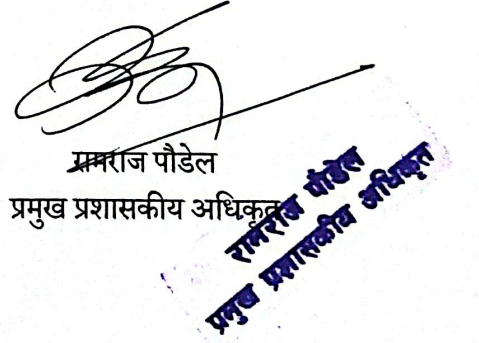 रामराज पौडेल
प्रमुख प्रशासकीय अधिकृत
रामराज पौडेल
प्रमुख प्रशासकीय अधिकृत